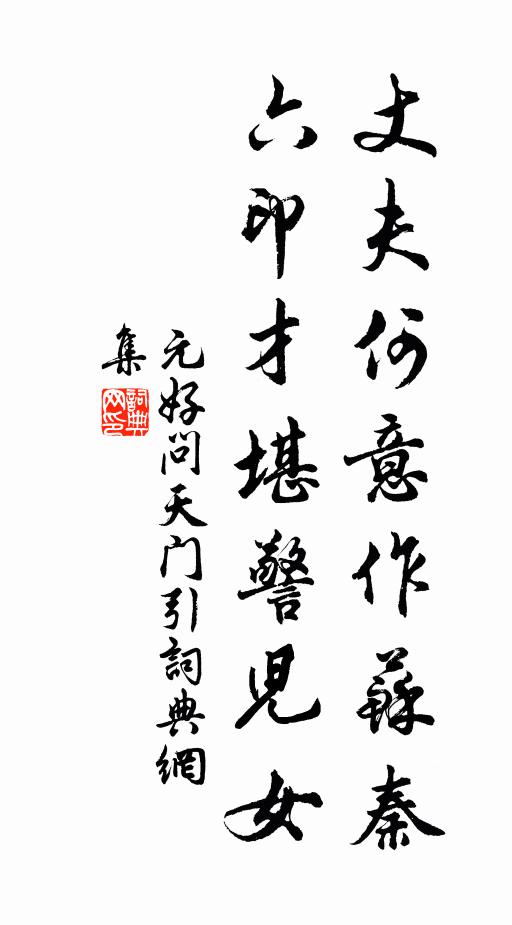 丈夫何意作蘇秦
六印才堪警児女
元好问天门引詞典網
集
詞典网印